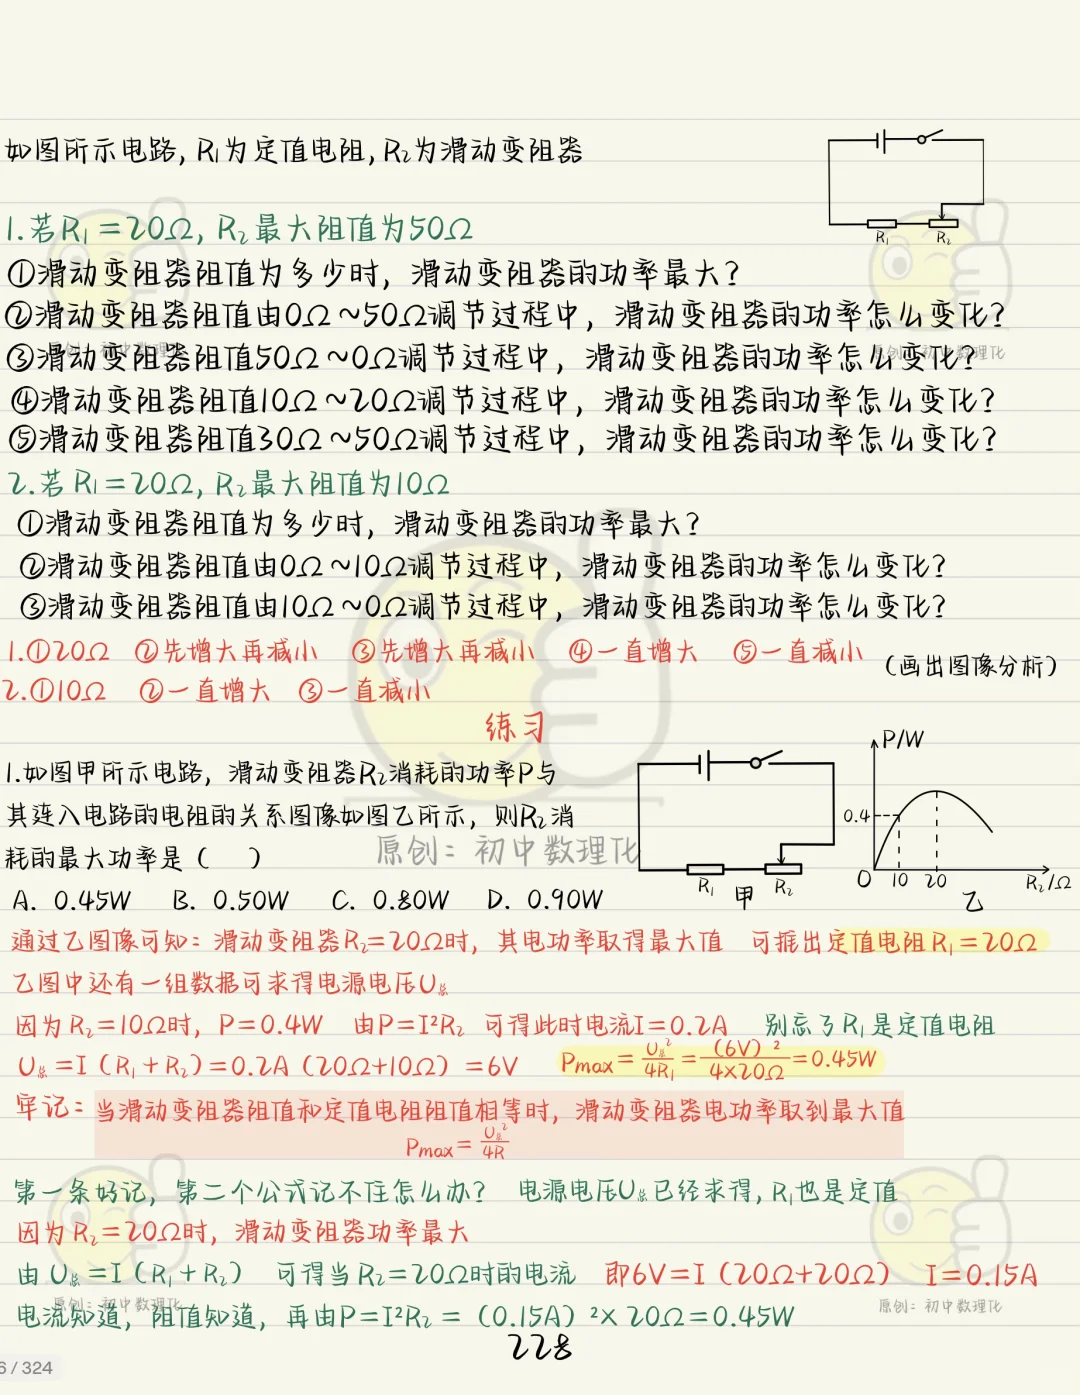 如图所示电路, R₁为定值电阻, R₂为滑动变阻器
R₁ R₂
1.若R₁=20Ω, R₂最大阻值为50Ω
①滑动变阻器阻值为多少时, 滑动变阻器的功率最大?
②滑动变阻器阻值由0Ω~50Ω调节过程中, 滑动变阻器的功率怎么变化?
③滑动变阻器阻值50Ω~0Ω调节过程中, 滑动变阻器的功率怎么变化?
④滑动变阻器阻值10Ω~20Ω调节过程中, 滑动变阻器的功率怎么变化?
⑤滑动变阻器阻值30Ω~50Ω调节过程中, 滑动变阻器的功率怎么变化?
2.若R₁=20Ω, R₂最大阻值为10Ω
①滑动变阻器阻值为多少时, 滑动变阻器的功率最大?
②滑动变阻器阻值由0Ω~10Ω调节过程中, 滑动变阻器的功率怎么变化?
③滑动变阻器阻值由10Ω~0Ω调节过程中, 滑动变阻器的功率怎么变化?
1.①20Ω ②先增大再减小 ③先增大再减小 ④一直增大 ⑤一直减小 (画出图像分析)
2.①10Ω ②一直增大 ③一直减小
练习
1.如图甲所示电路, 滑动变阻器R₂消耗的功率P与
其连入电路的电阻的关系图像如图乙所示, 则R₂消
耗的最大功率是( )
A. 0.45W B. 0.50W C. 0.80W D. 0.90W
R₁ 甲 R₂
P/W
0.4
0 10 20 乙 R₂/Ω
原创: 初中数理化
通过乙图像可知: 滑动变阻器R₂=20Ω时, 其电功率取得最大值 可推出定值电阻R₁=20Ω
乙图中还有一组数据可求得电源电压U总
因为R₂=10Ω时, P=0.4W 由P=I²R₂ 可得此时电流I=0.2A 别忘了R₁是定值电阻
U总=I(R₁+R₂)=0.2A(20Ω+10Ω)=6V Pmax=U总²/4R₁=(6V)²/4×20Ω=0.45W
牢记: 当滑动变阻器阻值和定值电阻阻值相等时, 滑动变阻器电功率取到最大值
Pmax=U总²/4R
第一条好记, 第二个公式记不住怎么办? 电源电压U总已经求得, R₁也是定值
因为R₂=20Ω时, 滑动变阻器功率最大
由U总=I(R₁+R₂) 可得当R₂=20Ω时的电流 即6V=I(20Ω+20Ω) I=0.15A
电流知道, 阻值知道, 再由P=I²R₂=(0.15A)²×20Ω=0.45W
原创: 初中数理化
228
6/324